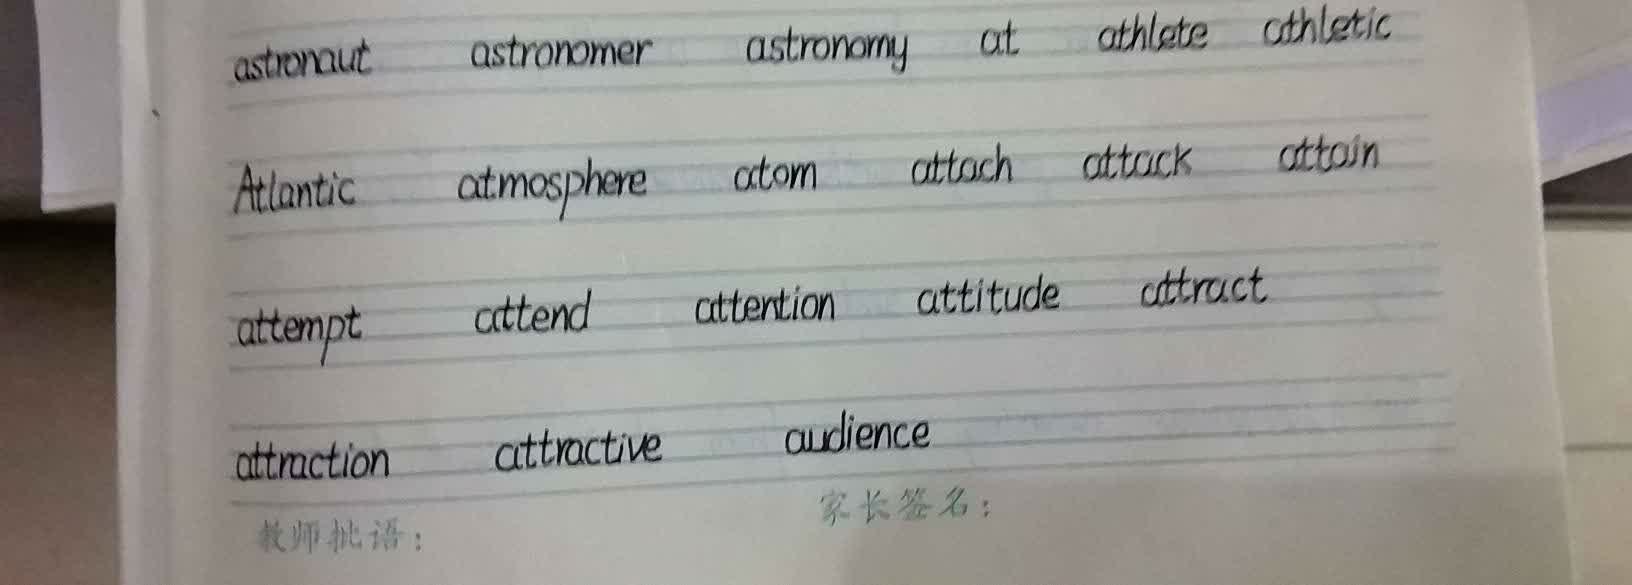 astronaut astronomer astronomy at athlete athletic
Atlantic atmosphere atom attach attack attain
attempt attend attention attitude attract
attraction attractive audience
教师批语： 家长签名：